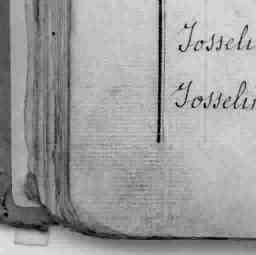 Josseli
Josselin